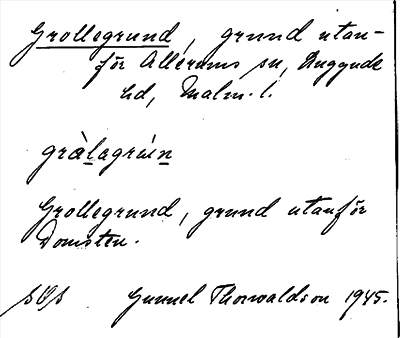 Grollegrund, grund utan-
för Allerums sn, Luggude
hd, Malm. l.
gràlagrún
Grollegrund, grund utanför
Domsten.
SOS Gunnel Thorwaldson 1945.